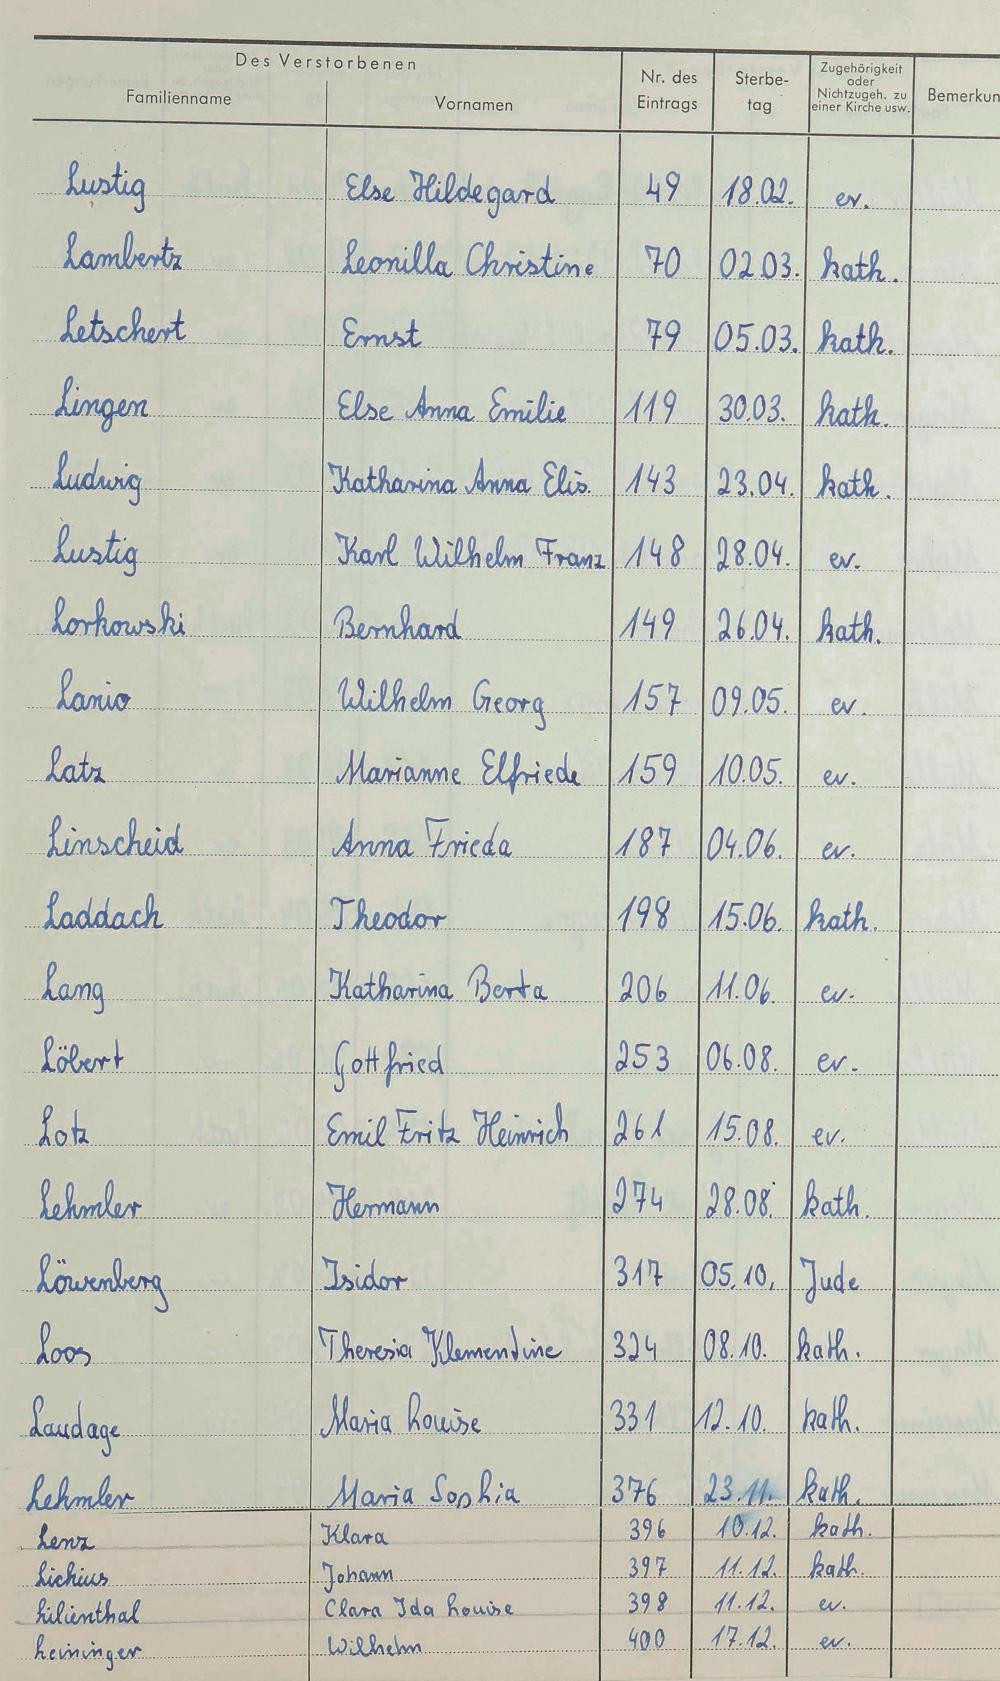 Des Verstorbenen
Familienname Vornamen Nr. des Eintrags Sterbe-tag Zugehörigkeit oder Nichtzugeh. zu einer Kirche usw. Bemerkun
Lustig Else Hildegard 49 18.02. ev.
Lambertz Leonilla Christine 70 02.03. kath.
Letschert Ernst 79 05.03. kath.
Lingen Else Anna Emilie 119 30.03. kath.
Ludwig Katharina Anna Elis. 143 23.04. kath.
Lustig Karl Wilhelm Franz 148 28.04. ev.
Lorkowski Bernhard 149 26.04. kath.
Lanio Wilhelm Georg 157 09.05. ev.
Latz Marianne Elfriede 159 10.05. ev.
Linscheid Anna Frieda 187 04.06. ev.
Laddach Theodor 198 15.06. kath.
Lang Katharina Berta 206 11.06. ev.
Löbert Gottfried 253 06.08. ev.
Lotz Emil Fritz Heinrich 261 15.08. ev.
Lehmler Hermann 274 28.08. kath.
Löwenberg Isidor 317 05.10. Jude
Loos Theresia Klementine 324 08.10. kath.
Laudage Maria Louise 331 12.10. kath.
Lehmler Maria Sophia 376 23.11. kath.
Lenz Klara 396 10.12. kath.
Lichius Johann 397 11.12. kath.
Lilienthal Clara Ida Louise 398 11.12. ev.
Leininger Wilhelm 400 17.12. ev.